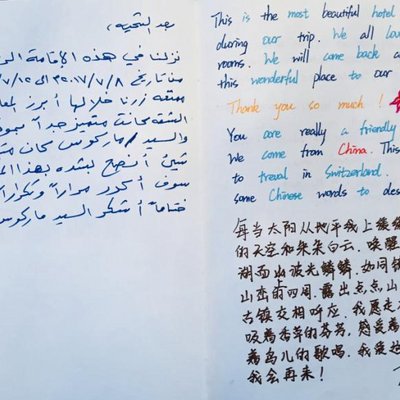 بعد التحية،
نزلنا في هذه الإقامة
من تاريخ ٢٠١٧/٧/٨ إلى ٧/١٥
ممتعه زرنا خلالها أبرز
الشقه كانت متميز جداً
والسيد / ماركوس كان
أنصح بشده بهذا
سوف أكرر مراراً وتكراراً
ختاماً أشكر السيد ماركوس
This is the most beautiful hotel
during our trip. We all
rooms. We will come back
this wonderful place to our
Thank you so much!
You are really a friendly
We come from China. This
to treval in Switzerland.
some Chinese words to des
每当太阳从地平线上缓缓
的天空和朵朵白云. 唤醒
湖面上波光鳞鳞. 如同
山峦的四周. 露出点点山
古镇交相呼应. 我愿走
吸着香草的芬芳, 感受着
着鸟儿的歌唱. 我爱这
我会再来!